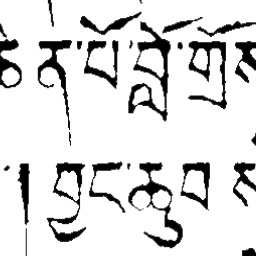 ཆེན་པོ་བློ་གྲོས
་། བྱང་ཆུབ་ས